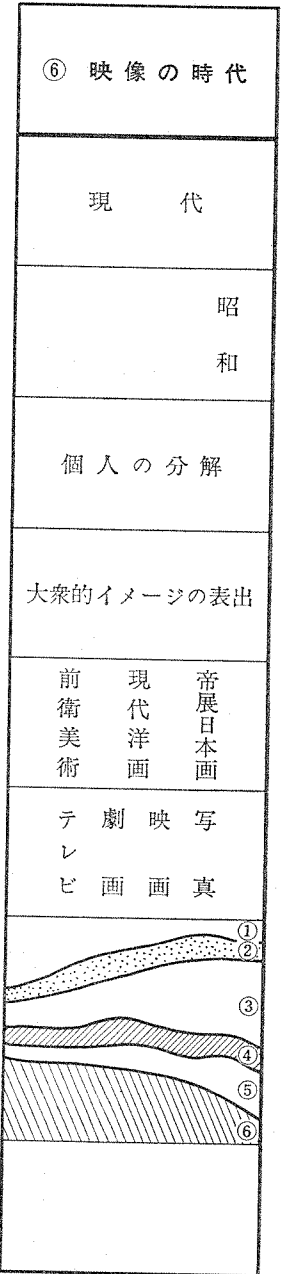 ⑥ 映像の時代
現代
昭和
個人の分解
大衆的イメージの表出
帝展日本画
現代洋画
前衛美術
写真
映画
劇画
テレビ
①
②
③
④
⑤
⑥